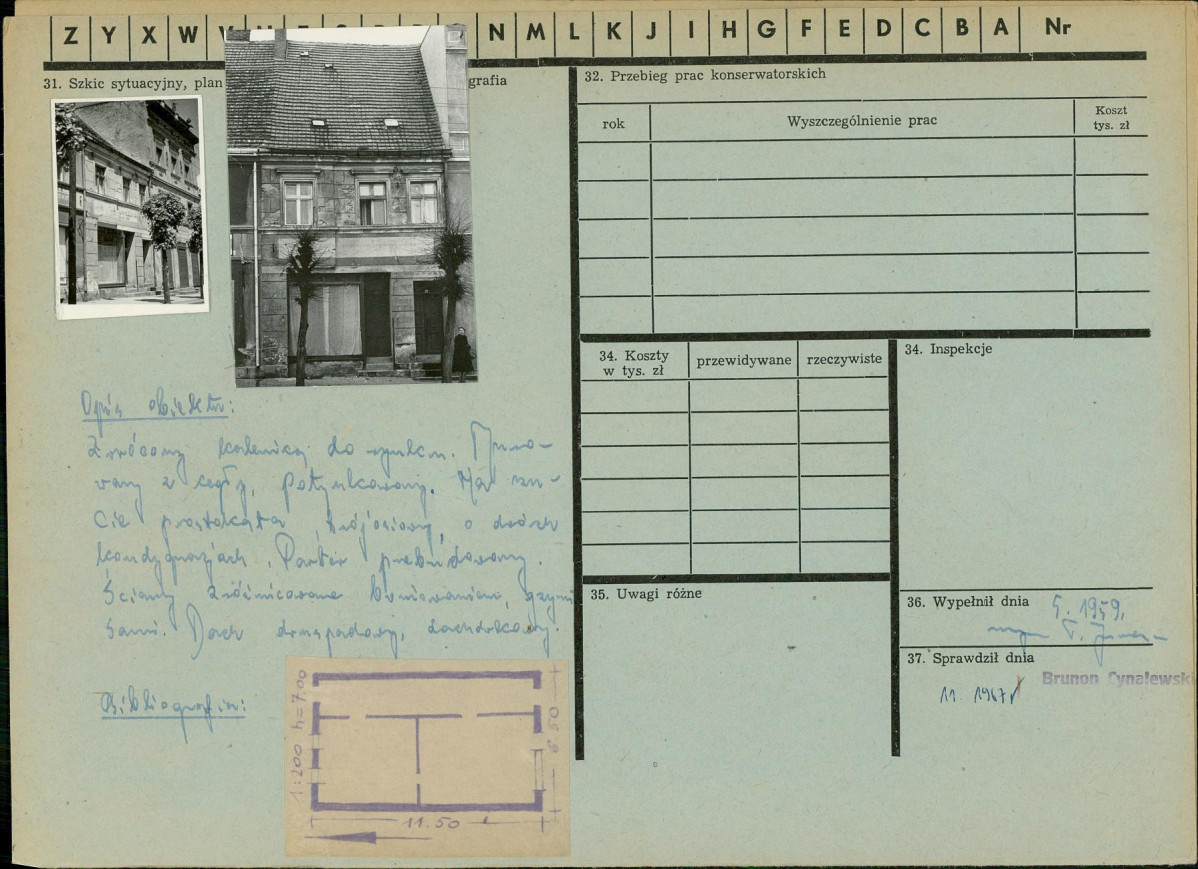 Z Y X W N M L K J I H G F E D C B A Nr
31. Szkic sytuacyjny, plan
grafia
Opis obiektu:
Zwrócony kalenicą do rynku. Muro-
wany z cegły, potynkowany. Na rzu-
cie prostokąta, trójosiowy, o dwóch
kondygnacjach. Parter przebudowany.
Ściany zróżnicowane boniowaniem, gzym
sami. Dach dwuspadowy, dachówkowy.
Bibliografia:
1:200 h=7.00
6.50
11.50
32. Przebieg prac konserwatorskich
rok
Wyszczególnienie prac
Koszt
tys. zł
34. Koszty
w tys. zł
przewidywane
rzeczywiste
34. Inspekcje
35. Uwagi różne
36. Wypełnił dnia
5. 1959.
mgr T.
37. Sprawdził dnia
Brunon Cynalewski
11. 1967r